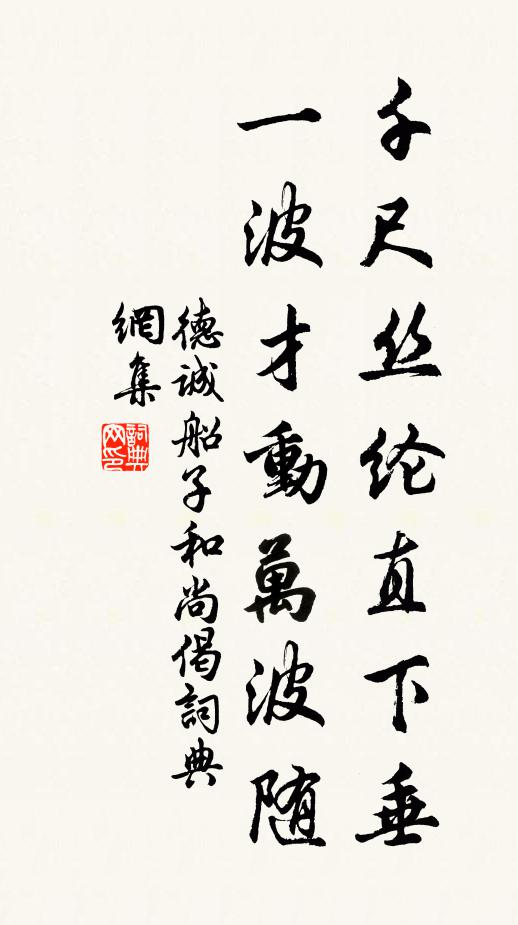 千尺丝纶直下垂
一波才動萬波随
德诚船子和尚偈詞典
網集
詞典
网印